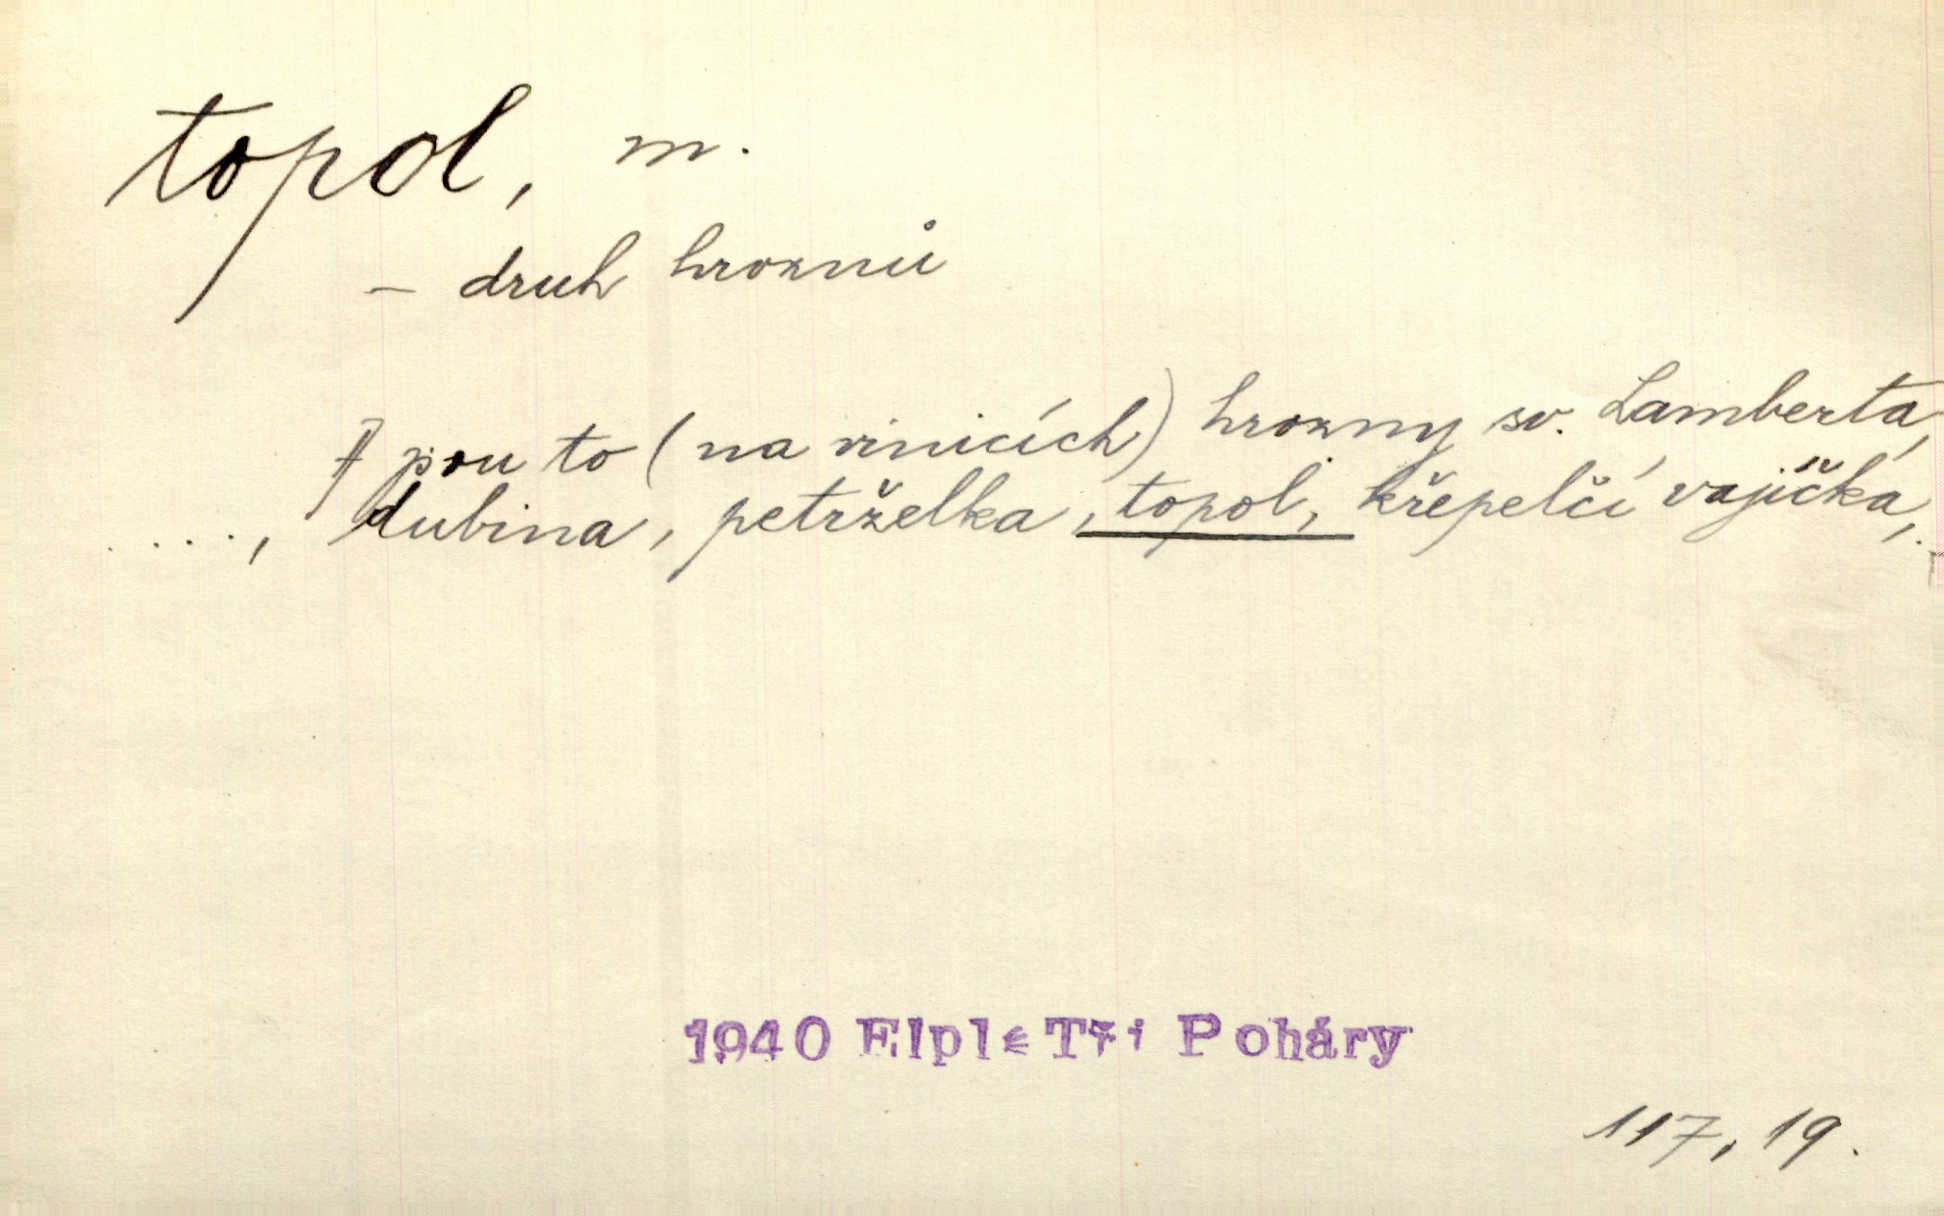 topol, m.
– druh hroznů
A jsou to (na vinicích) hrozny sv. Lamberta,
....., dubina, petrželka, topol, křepelčí vajíčka,
1940 Elpl Tři Poháry
117, 19.